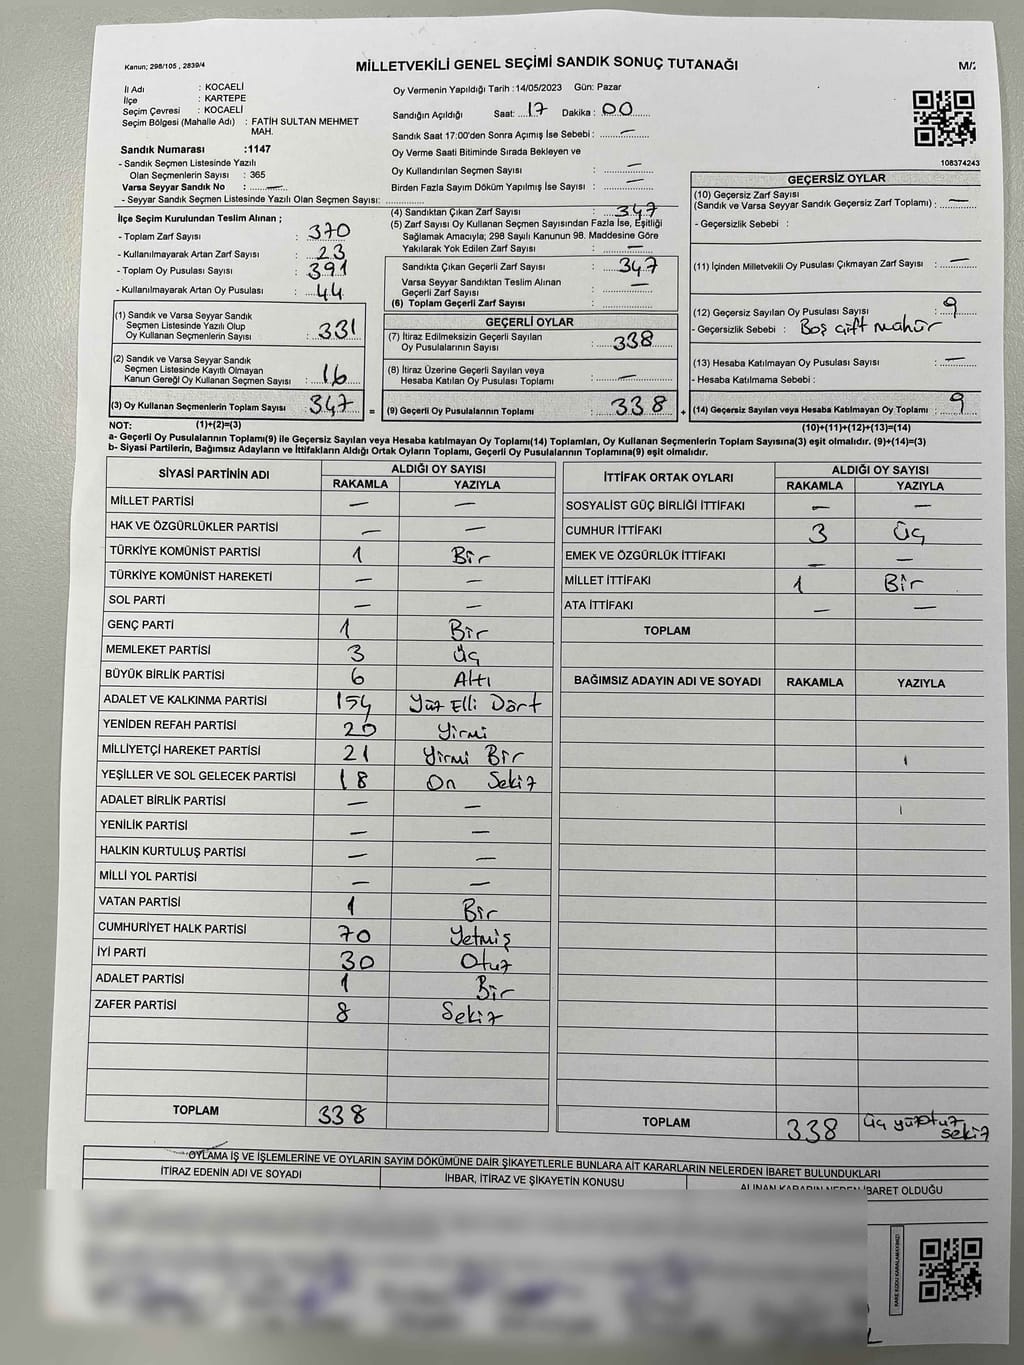 Kanun; 298/105 , 2839/4
MİLLETVEKİLİ GENEL SEÇİMİ SANDIK SONUÇ TUTANAĞI
M/2
İl Adı : KOCAELİ
İlçe : KARTEPE
Seçim Çevresi : KOCAELİ
Seçim Bölgesi (Mahalle Adı) : FATİH SULTAN MEHMET
MAH.
Sandık Numarası :1147
- Sandık Seçmen Listesinde Yazılı
Olan Seçmenlerin Sayısı : 365
Varsa Seyyar Sandık No : —
- Seyyar Sandık Seçmen Listesinde Yazılı Olan Seçmen Sayısı:
Oy Vermenin Yapıldığı Tarih :14/05/2023 Gün: Pazar
Sandığın Açıldığı Saat: 17 Dakika : 00
Sandık Saat 17:00'den Sonra Açımış İse Sebebi : —
Oy Verme Saati Bitiminde Sırada Bekleyen ve
Oy Kullandırılan Seçmen Sayısı : —
Birden Fazla Sayım Döküm Yapılmış İse Sayısı : —
108374243
İlçe Seçim Kurulundan Teslim Alınan ;
- Toplam Zarf Sayısı : 370
- Kullanılmayarak Artan Zarf Sayısı : 23
- Toplam Oy Pusulası Sayısı : 391
- Kullanılmayarak Artan Oy Pusulası : 44
(1) Sandık ve Varsa Seyyar Sandık
Seçmen Listesinde Yazılı Olup
Oy Kullanan Seçmenlerin Sayısı : 331
(2) Sandık ve Varsa Seyyar Sandık
Seçmen Listesinde Kayıtlı Olmayan
Kanun Gereği Oy Kullanan Seçmen Sayısı : 16
(3) Oy Kullanan Seçmenlerin Toplam Sayısı : 347
(4) Sandıktan Çıkan Zarf Sayısı : 347
(5) Zarf Sayısı Oy Kullanan Seçmen Sayısından Fazla İse, Eşitliği
Sağlamak Amacıyla; 298 Sayılı Kanunun 98. Maddesine Göre
Yakılarak Yok Edilen Zarf Sayısı : —
Sandıkta Çıkan Geçerli Zarf Sayısı : 347
Varsa Seyyar Sandıktan Teslim Alınan
Geçerli Zarf Sayısı : —
(6) Toplam Geçerli Zarf Sayısı :
GEÇERLİ OYLAR
(7) İtiraz Edilmeksizin Geçerli Sayılan
Oy Pusulalarının Sayısı : 338
(8) İtiraz Üzerine Geçerli Sayılan veya
Hesaba Katılan Oy Pusulası Toplamı : —
= (9) Geçerli Oy Pusulalarının Toplamı : 338
GEÇERSİZ OYLAR
(10) Geçersiz Zarf Sayısı
(Sandık ve Varsa Seyyar Sandık Geçersiz Zarf Toplamı) : —
- Geçersizlik Sebebi :
(11) İçinden Milletvekili Oy Pusulası Çıkmayan Zarf Sayısı : —
(12) Geçersiz Sayılan Oy Pusulası Sayısı : 9
- Geçersizlik Sebebi : Boş çift mühür
(13) Hesaba Katılmayan Oy Pusulası Sayısı : —
- Hesaba Katılmama Sebebi :
+ (14) Geçersiz Sayılan veya Hesaba Katılmayan Oy Toplamı : 9
NOT: (1)+(2)=(3)
(10)+(11)+(12)+(13)=(14)
a- Geçerli Oy Pusulalarının Toplamı(9) ile Geçersiz Sayılan veya Hesaba katılmayan Oy Toplamı(14) Toplamları, Oy Kullanan Seçmenlerin Toplam Sayısına(3) eşit olmalıdır. (9)+(14)=(3)
b- Siyasi Partilerin, Bağımsız Adayların ve İttifakların Aldığı Ortak Oyların Toplamı, Geçerli Oy Pusulalarının Toplamına(9) eşit olmalıdır.
SİYASİ PARTİNİN ADI ALDIĞI OY SAYISI
RAKAMLA YAZIYLA
MİLLET PARTİSİ — —
HAK VE ÖZGÜRLÜKLER PARTİSİ — —
TÜRKİYE KOMÜNİST PARTİSİ 1 Bir
TÜRKİYE KOMÜNİST HAREKETİ — —
SOL PARTİ — —
GENÇ PARTİ 1 Bir
MEMLEKET PARTİSİ 3 Üç
BÜYÜK BİRLİK PARTİSİ 6 Altı
ADALET VE KALKINMA PARTİSİ 154 Yüz Elli Dört
YENİDEN REFAH PARTİSİ 20 Yirmi
MİLLİYETÇİ HAREKET PARTİSİ 21 Yirmi Bir
YEŞİLLER VE SOL GELECEK PARTİSİ 18 On Sekiz
ADALET BİRLİK PARTİSİ — —
YENİLİK PARTİSİ — —
HALKIN KURTULUŞ PARTİSİ — —
MİLLİ YOL PARTİSİ — —
VATAN PARTİSİ 1 Bir
CUMHURİYET HALK PARTİSİ 70 Yetmiş
İYİ PARTİ 30 Otuz
ADALET PARTİSİ 1 Bir
ZAFER PARTİSİ 8 Sekiz
TOPLAM 338
İTTİFAK ORTAK OYLARI ALDIĞI OY SAYISI
RAKAMLA YAZIYLA
SOSYALİST GÜÇ BİRLİĞİ İTTİFAKI — —
CUMHUR İTTİFAKI 3 Üç
EMEK VE ÖZGÜRLÜK İTTİFAKI — —
MİLLET İTTİFAKI 1 Bir
ATA İTTİFAKI — —
TOPLAM
BAĞIMSIZ ADAYIN ADI VE SOYADI RAKAMLA YAZIYLA
TOPLAM 338 Üç yüz otuz
sekiz
OYLAMA İŞ VE İŞLEMLERİNE VE OYLARIN SAYIM DÖKÜMÜNE DAİR ŞİKAYETLERLE BUNLARA AİT KARARLARIN NELERDEN İBARET BULUNDUKLARI
İTİRAZ EDENİN ADI VE SOYADI İHBAR, İTİRAZ VE ŞİKAYETİN KONUSU ALINAN KARARIN NEDEN İBARET OLDUĞU